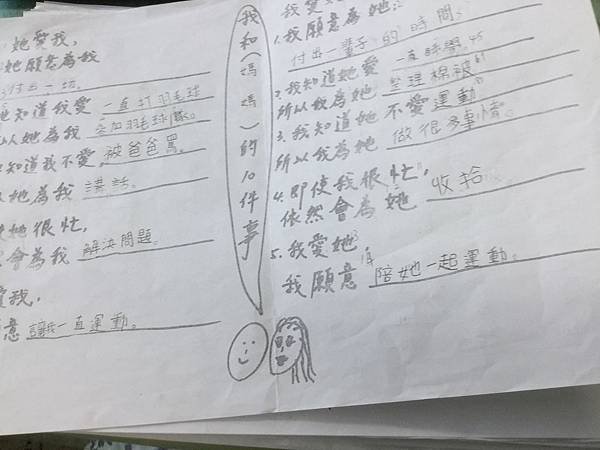 我和(媽媽)的10件事
我愛
1.我願意為她:
付出一輩子的時間。
2.我知道她愛一直睡覺。
所以我為她整理棉被。
3.我知道她不愛運動
所以我為她做很多事情。
4.即使我很忙,
依然會為她收拾。
5.我愛她,
我願意陪她一起運動。
她愛我,
她願意為我
付出一切。
知道我愛一直打羽毛球
以她為我參加羽毛球隊。
知道我不愛被爸爸罵。
她為我講話。
她很忙,
會為我解決問題。
愛我,
意讓我一直運動。